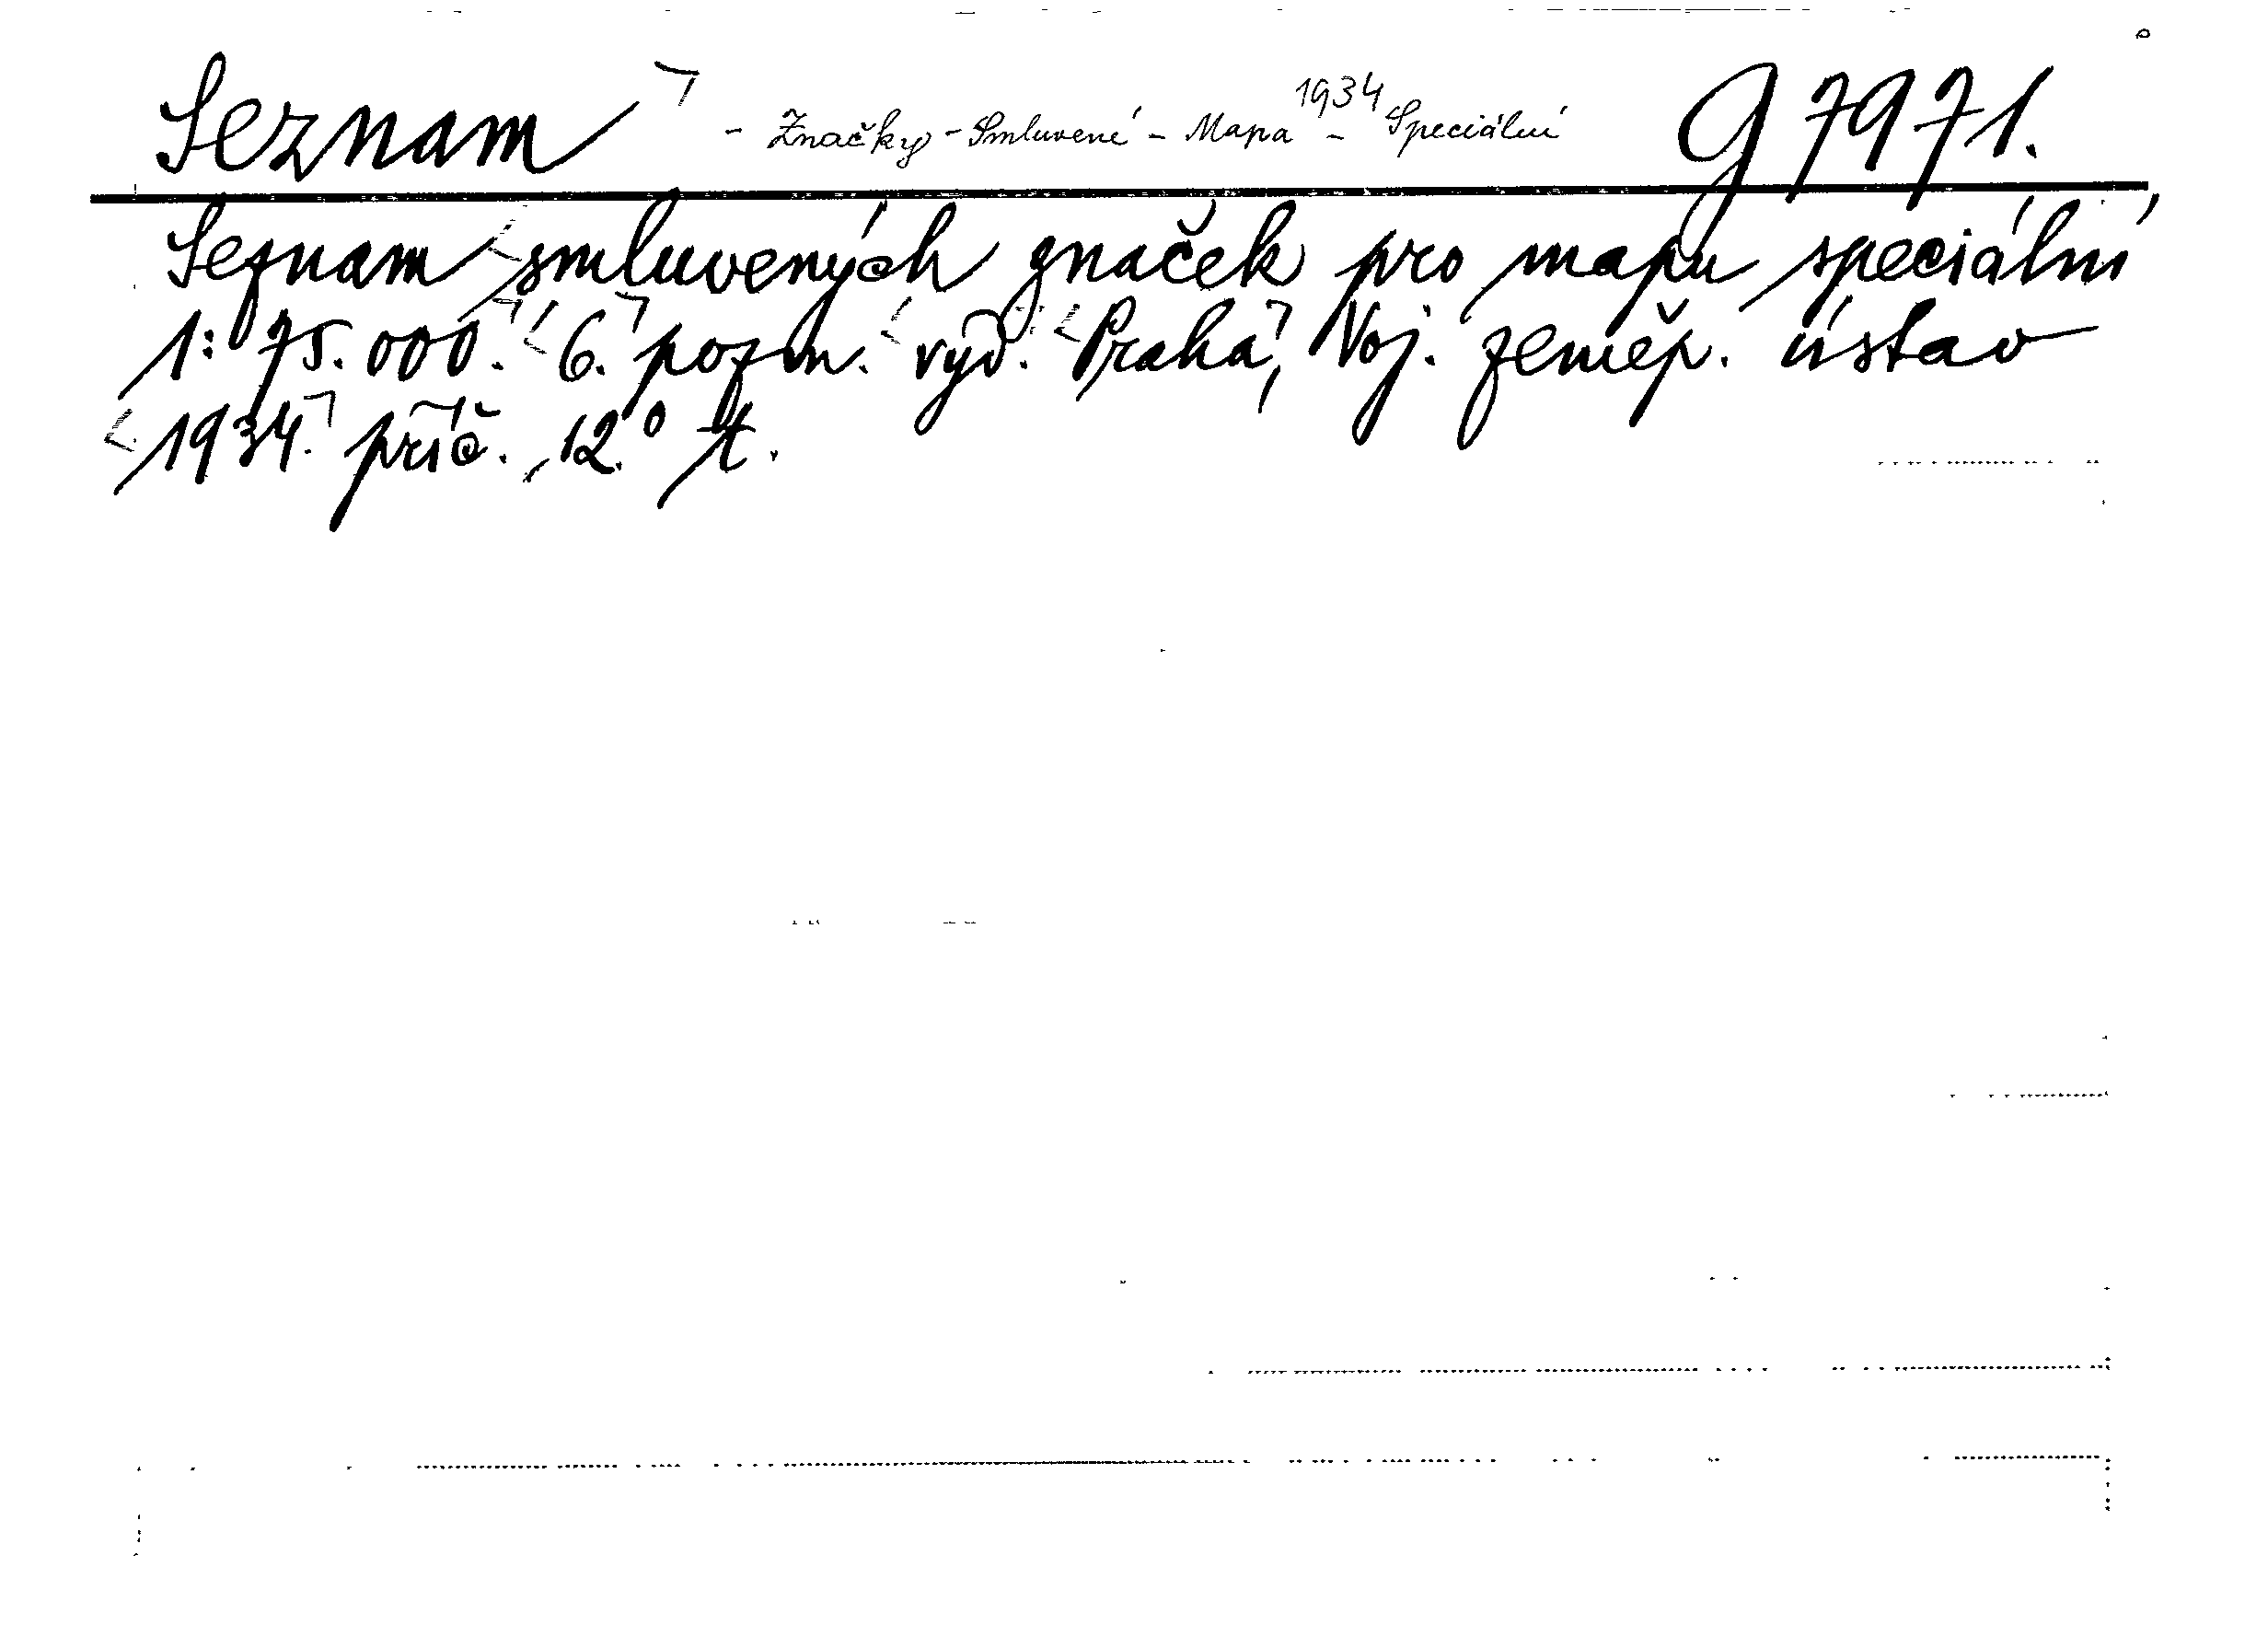 Seznam - Značky - Smluvené - Mapa - Speciální 1934 G 7971.
Seznam smluvených značek pro mapu speciální
1:75.000. 6. pozm. vyd. Praha, Voj. zeměp. ústav
1934. příč. 12° t.